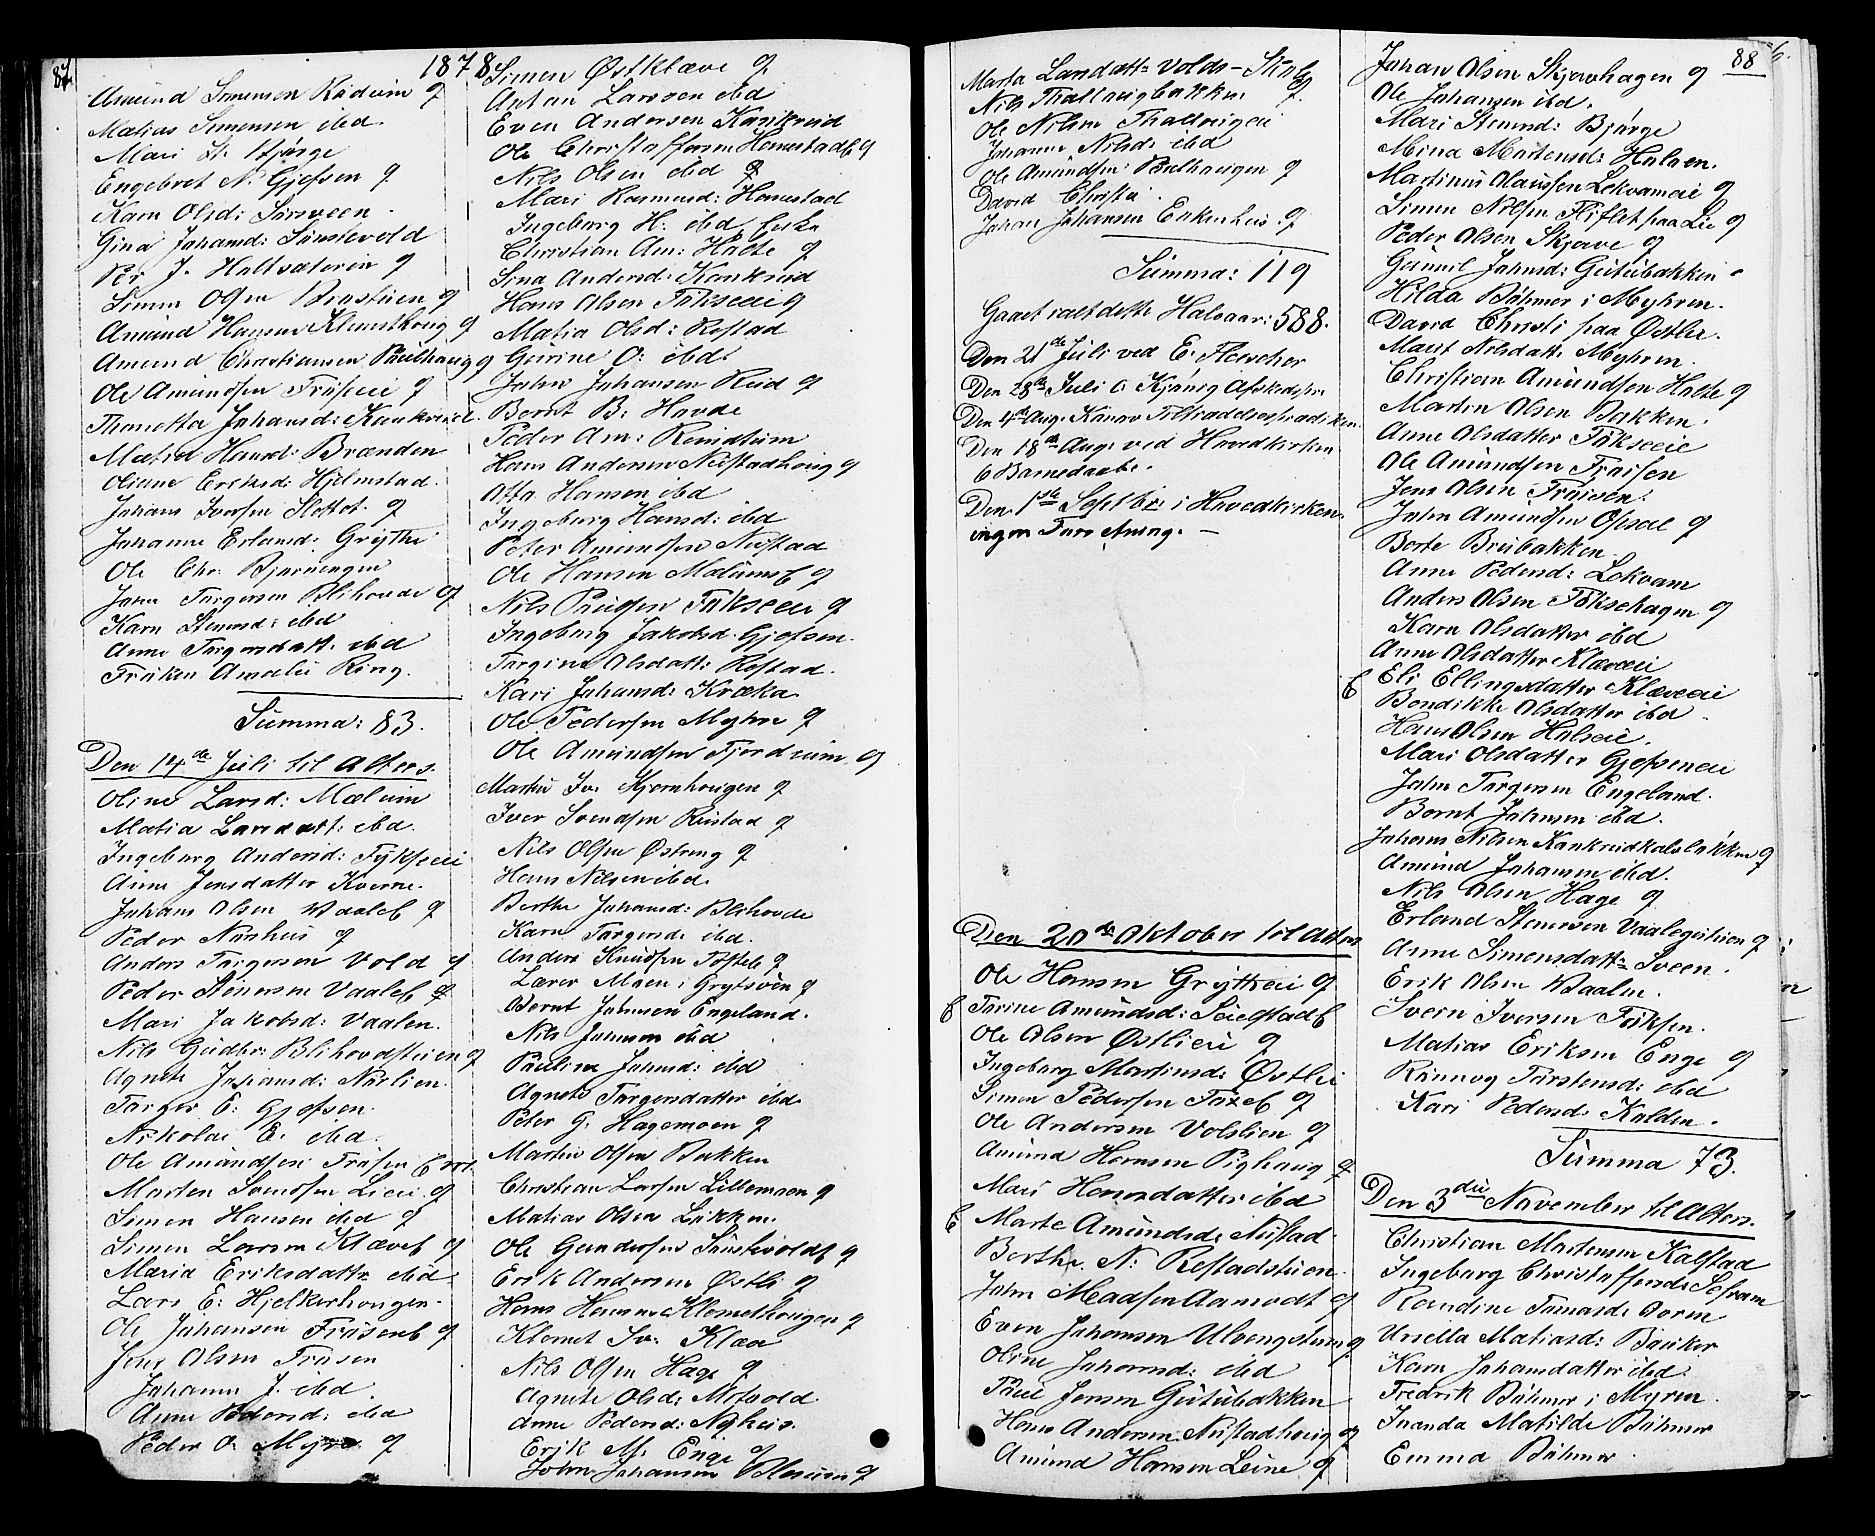 87
1878
Amund Simensen Rudium q
Matias Simensen ibd
Mari St. Bjørge
Engebret N. Gjefsen q
Karn Olsd: Sørsveen
Gina Johansd: Sunstevold
Per J. Haltsæteren q
Simen Olsen Brustuen q
Amund Hansen Klemethoug q
Amund Christiansen Poulhaug q
Ole Amundsen Frøiseie q
Thonetta Johansd: Kankrud
Matia Hansd: Brænden
Oliane Eriksd: Hjelmstad
Johans Iversen Slottet q
Johanne Erlandsd: Grytthe
Ole Chr. Bjørnengen
John Torgersen Blihovde q
Karn Stenersd: ibd
Anne Torgersdatt: ibd
Frøken Amalie Ring.
Summa: 83.
Den 14de Juli til Alters.
Oline Larsd: Mælum
Matia Larsdatt: ibd.
Ingeborg Andersd: Fykseie
Anne Jensdatter Kverne.
Johans Olsen Vaaleb q
Peder Nørshus q
Anders Torgersen Vold q
Peder Stenersen Vaaleb q
Mari Jakobsd: Vaalen.
Nils Gudbr: Blihovdstuen q
Agnete Johansd: Nørlien.
Torger E: Gjefsen.
Nikolai E. ibd.
Ole Amundsen Frøisen
Morten Svendsen Lieie q
Simen Hansen ibd q
Simen Larsen Klæveb q
Maria Eriksdattr ibd
Lars E: Hjelkerhougen.
Ole Johansen Frøseneb q
Jens Olsen Frøisen
Johanne J. ibd.
Anne Pedersd: ibd
Peder O. Myre q
Simen Østklæve q
Anton Larsen ibd
Even Andersen Kankrud
Ole Christoffersen Homestadb q
Nils Olsen ibd q
Mari Rasmusd: Homestad
Ingeborg H. ibd
Christian Am: Halte q
Sina Andersd: Kankrud
Hans Olsen Fokseie q
Matia Olsd: Rostad
Gurine O: ibd:
John Johansen Rud q
Bernt B: Hovde
Peder Am: Reindium
Hans Andersen Nustadhoug q
Otta Hansen ibd
Ingeborg Hansd: ibd
Peter Amundsen Nustad
Ole Hansen Mælumsb q
Nils Poulsen Fokseeie q
Ingeborg Jakobsd. Gjefsen.
Torgine Olsdatt: Rostad.
Kari Johansd: Kræka
Ole Pedersen Myhre q
Ole Amundsen Fjordeium q
Martin Iv. Kjernhougen q
Iver Svendsen Rustad q
Nils Olsen Østeng q
Hans Nilsen ibd.
Berthe Johansd: Blihovde
Karn Torgersd: ibd.
Anders Knudsen Tofteb q
Lærer Moen i Grytsvên q
Bernt Johnsen Engeland.
Nils Johnsen ibd
Pauline Johnsd: ibd
Agnete Torgersdatter ibd
Peter G. Hagemoen q
Martin Olsen Bakken
Christian Larsen Lillemoen q
Matias Olsen Løkken.
Ole Gundersen Sunstevoldb q
Erik Andersen Østli q
Hans Hansen Klemethougen q
Klemet Sv: Klæv
Nils Olsen Hage q
Agnete Olsd: Mosvold
Anne Pedersd: Nørhus.
Erik M. Enge q
John Johansen Blesum q
Marta Larsdattr Volds-
Nils Thallaugbakken q
Ole Nilsen Thallaugeie
Johanne Nilsd: ibd
Ole Amundsen Poulhaugen q
David Christi.
Johan Johansen Enkenhus q
Summa: 119
Gaaet i alt dette Halvaar: 588.
Den 21de Juli ved E. Fleischer
Den 28de Juli
Den 4de Aug: Kanow Tiltrædelsespræeken.
Den 18de Aug. ved Hovedkirken
6 Barnedaabe.
Den 1ste Septbr i Hovedkirken
ingen Forretning. —
Den 20de Oktober til Alters
Ole Hansen Grytteie q
Torine Amundsd: Seiestadb
Ole Olsen Østlieie q
Ingeborg Martinsd: Østlie
Simen Pedersen Foxeb q
Ole Andersen Volslien q
Amund Hansen Pighaug q
Mari Hansdatter ibd
Marte Amundsd: Nustad.
Berthe N: Rostadstuen
John Madsen Aamodt q
Even Johansen Ulvengstuen q
Oline Johansd: ibd
Poul Jensen Gutubakken
Hans Andersen Nustadhoug q
Amund Hansen Leine q
88
Johan Olsen Skjævhagen q
Ole Johansen ibd.
Mari Stenersd: Bjørge
Mina Martensd: Halven.
Martinus Olausen Lokvameie q
Simen Nilsen Fliflet paa Lie q
Peder Olsen Skjæve q
Gunnil Johnsd: Gutubakken
Hilda Bøhmer i Myhren.
David Christi paa Østlie.
Marit Nilsdatt: Myhren.
Christian Amundsen Halte q
Morten Olsen Bakken.
Anne Olsdatter Fokseeie
Ole Amundsen Frøisen
Jens Olsen Frøisen.
John Amundsen Opsal q
Berte Brubakken.
Anne Pedersd: Lokvam
Anders Olsen Foksehagen q
Karn Olsdatter ibd
Anne Olsdatter Klæveie
Eli Ellingsdatter Klæveeie
Bendikke Olsdatter ibd
Hans Olsen Halseie.
Mari Olsdatter Gjefseneie
John Torgersen Engeland.
Bernt Johnsen ibd.
Johans Nilsen Kankrudkalsløkken q
Amund Johansen ibd.
Nils Olsen Hage q
Erland Stenersen Vaalegutuen q
Anne Simensdattr Sveen.
Erik Olsen Vaalen.
Svern Iversen Foksen.
Matias Eriksen Enge q
Rønnog Torstensd: ibd
Kari Pedersd: Kalden.
Summa 73.
Den 3die November til Alters.
Christian Martensen Kalstad
Ingeborg Christoffersd: Lofram
Randine
Ursella Matiasd: Bauker
Karn Johansdatter ibd.
Fredrik Bøhmer i Myren.
Juanda Matilde Bøhmer
Emma Bøhmer.